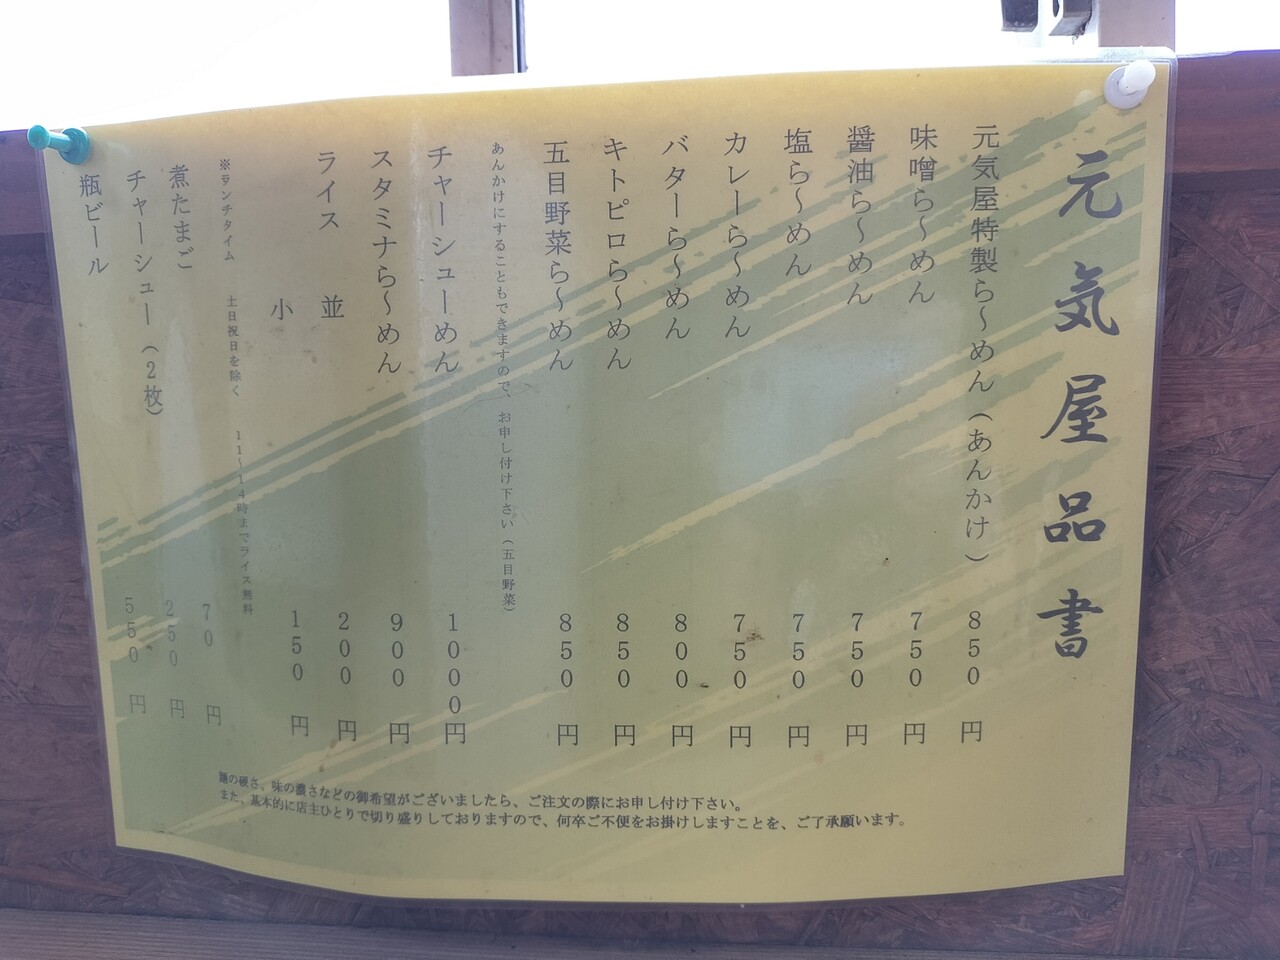 元気屋品書
元気屋特製ら〜めん（あんかけ） 850円
味噌ら〜めん 750円
醤油ら〜めん 750円
塩ら〜めん 750円
カレーら〜めん 750円
バターら〜めん 800円
キトピロら〜めん 850円
五目野菜ら〜めん 850円
あんかけにすることもできますので、お申し付け下さい（五目野菜）
チャーシューめん 1000円
スタミナら〜めん 900円
ライス 並 200円
小 150円
※ランチタイム 土日祝日を除く 11〜14時までライス無料
煮たまご 70円
チャーシュー（2枚） 250円
瓶ビール 550円
麺の硬さ、味の濃さなどの御希望がございましたら、ご注文の際にお申し付け下さい。
また、基本的に店主ひとりで切り盛りしておりますので、何卒ご不便をお掛けしますことを、ご了承願います。